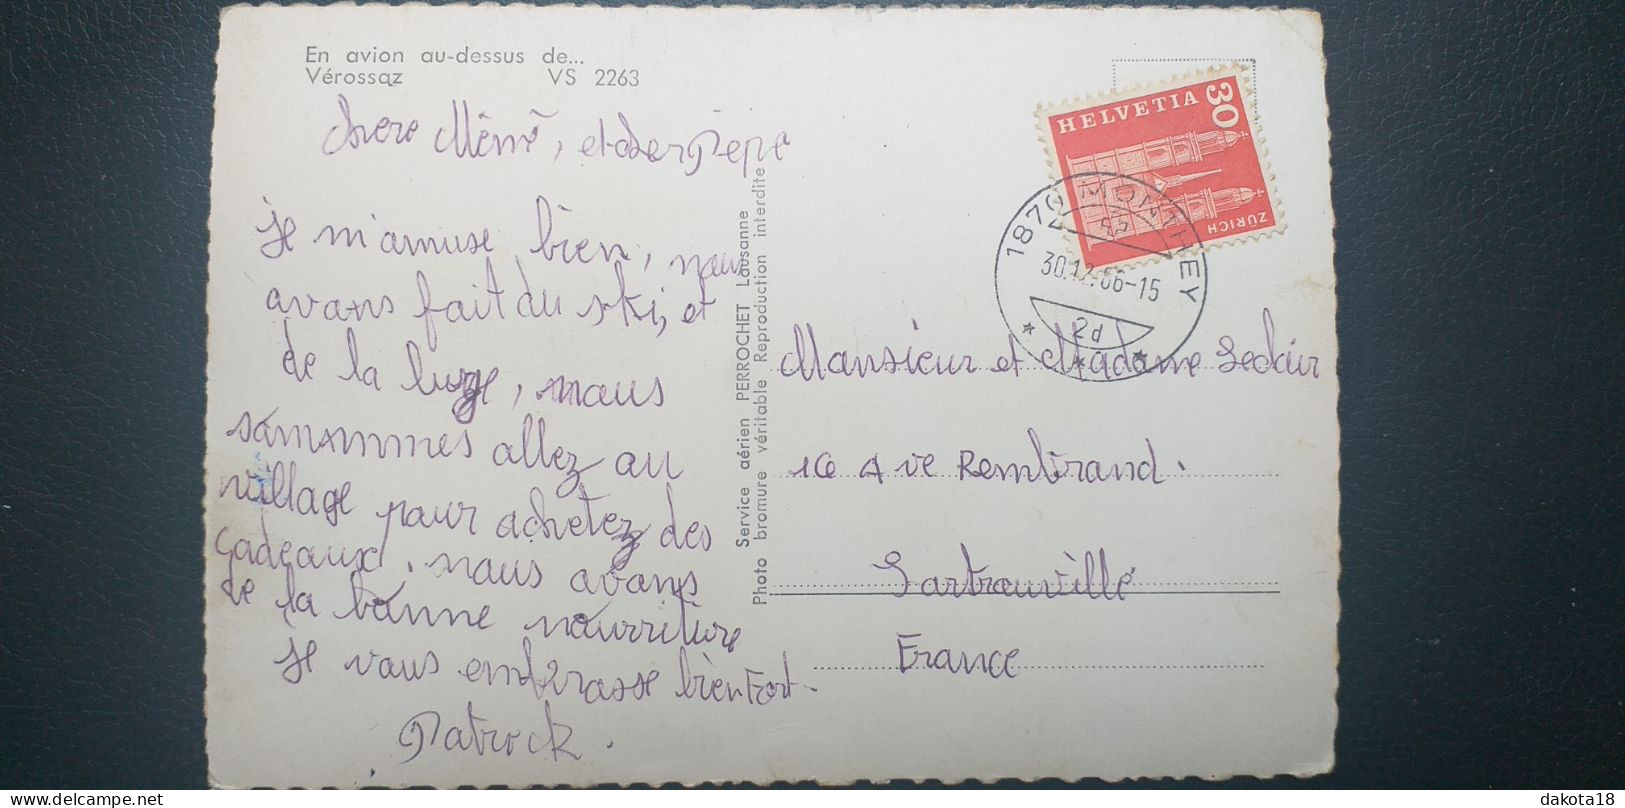 En avion au-dessus de...
Vérossaz VS 2263
chere Mémé, et cher Pepé
je m'amuse bien, nous
avons fait du ski, et
de la luge, nous
sommes allez au
village pour achetez des
gadeaux. nous avons
de la bonne nourriture
je vous embrasse bien Fort.
Patrick.
Service aérien PERROCHET Lausanne
Photo bromure véritable Reproduction interdite
HELVETIA
30
ZÜRICH
1870 MONTHEY
30.12.66-15
2d
Monsieur et Madame Leclair
16 Ave Rembrand.
Sartrouville
France
dakota18